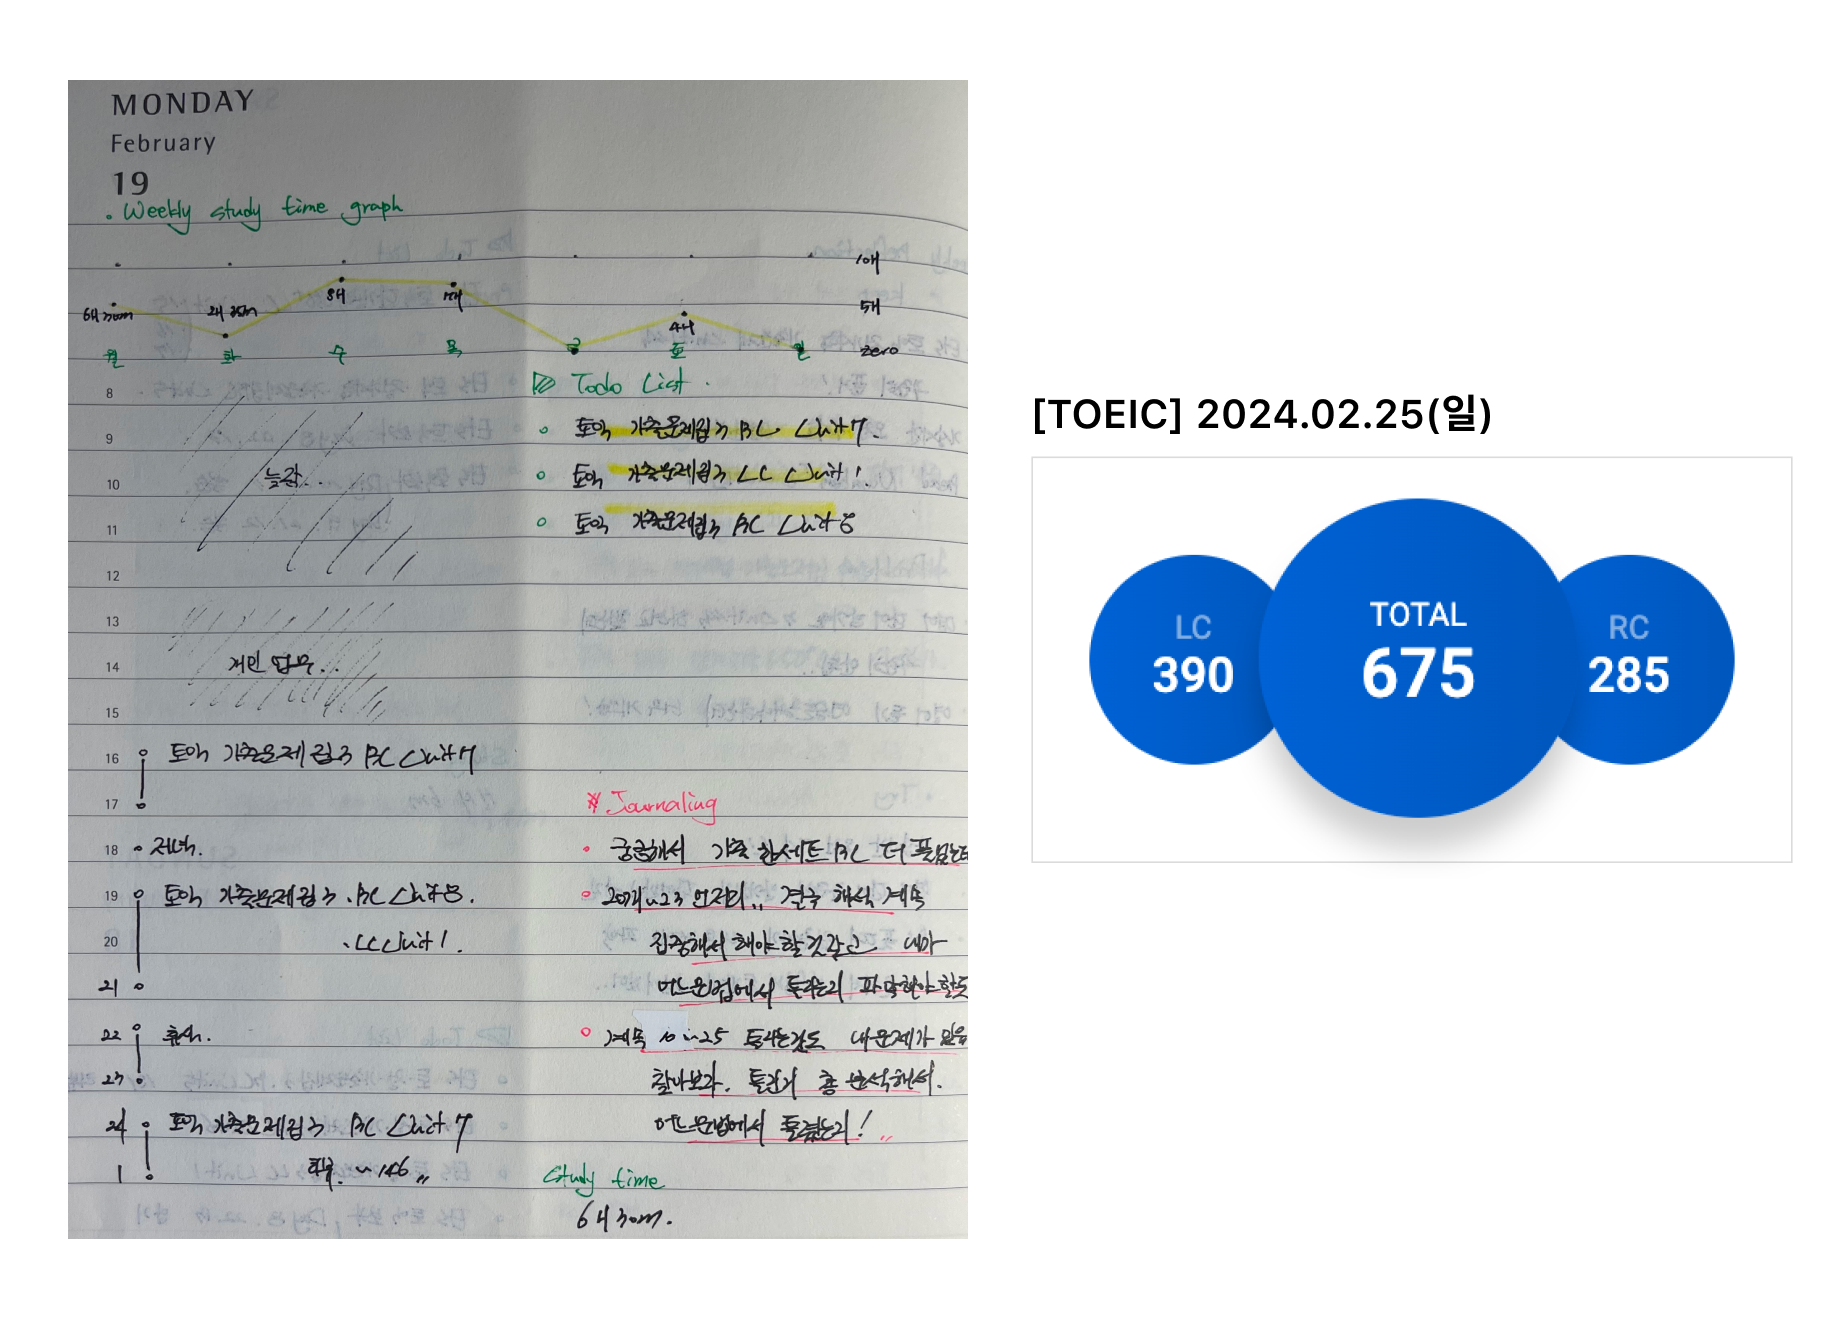 MONDAY
February
19
. Weekly study time graph
10H
6H 30m
2H 35m
8H
7H
4H
5H
월 화 수 목 금 토 일
zero
8
9
10
11
12
13
14
15
16
17
18
19
20
21
22
23
24
1
늦잠...
개인 업무...
토익 기출문제집3 RC Unit 7
저녁.
토익 기출문제집3 . RC Unit 8.
. LC Unit 1.
휴식.
토익 기출문제집3 RC Unit 7
~ 146
Todo List.
토익 기출문제집3 RC Unit 7.
토익 기출문제집3 LC Unit 1.
토익 기출문제집3 RC Unit 8
※ Journaling
궁금해서 기출 한세트 RC 더
20개~23 언저리.. 결국 해석 계속
집중해서 해야 할 것 같고 내가
어느 문법에서 틀리는지 파악해야 할듯
계속 20~25 틀리는것도 내 문제가 있음
찾아보자. 틀린거 총 분석해서.
어느 문법에서 틀렸는지!
Study time
6H 30m.
[TOEIC] 2024.02.25(일)
LC
390
TOTAL
675
RC
285